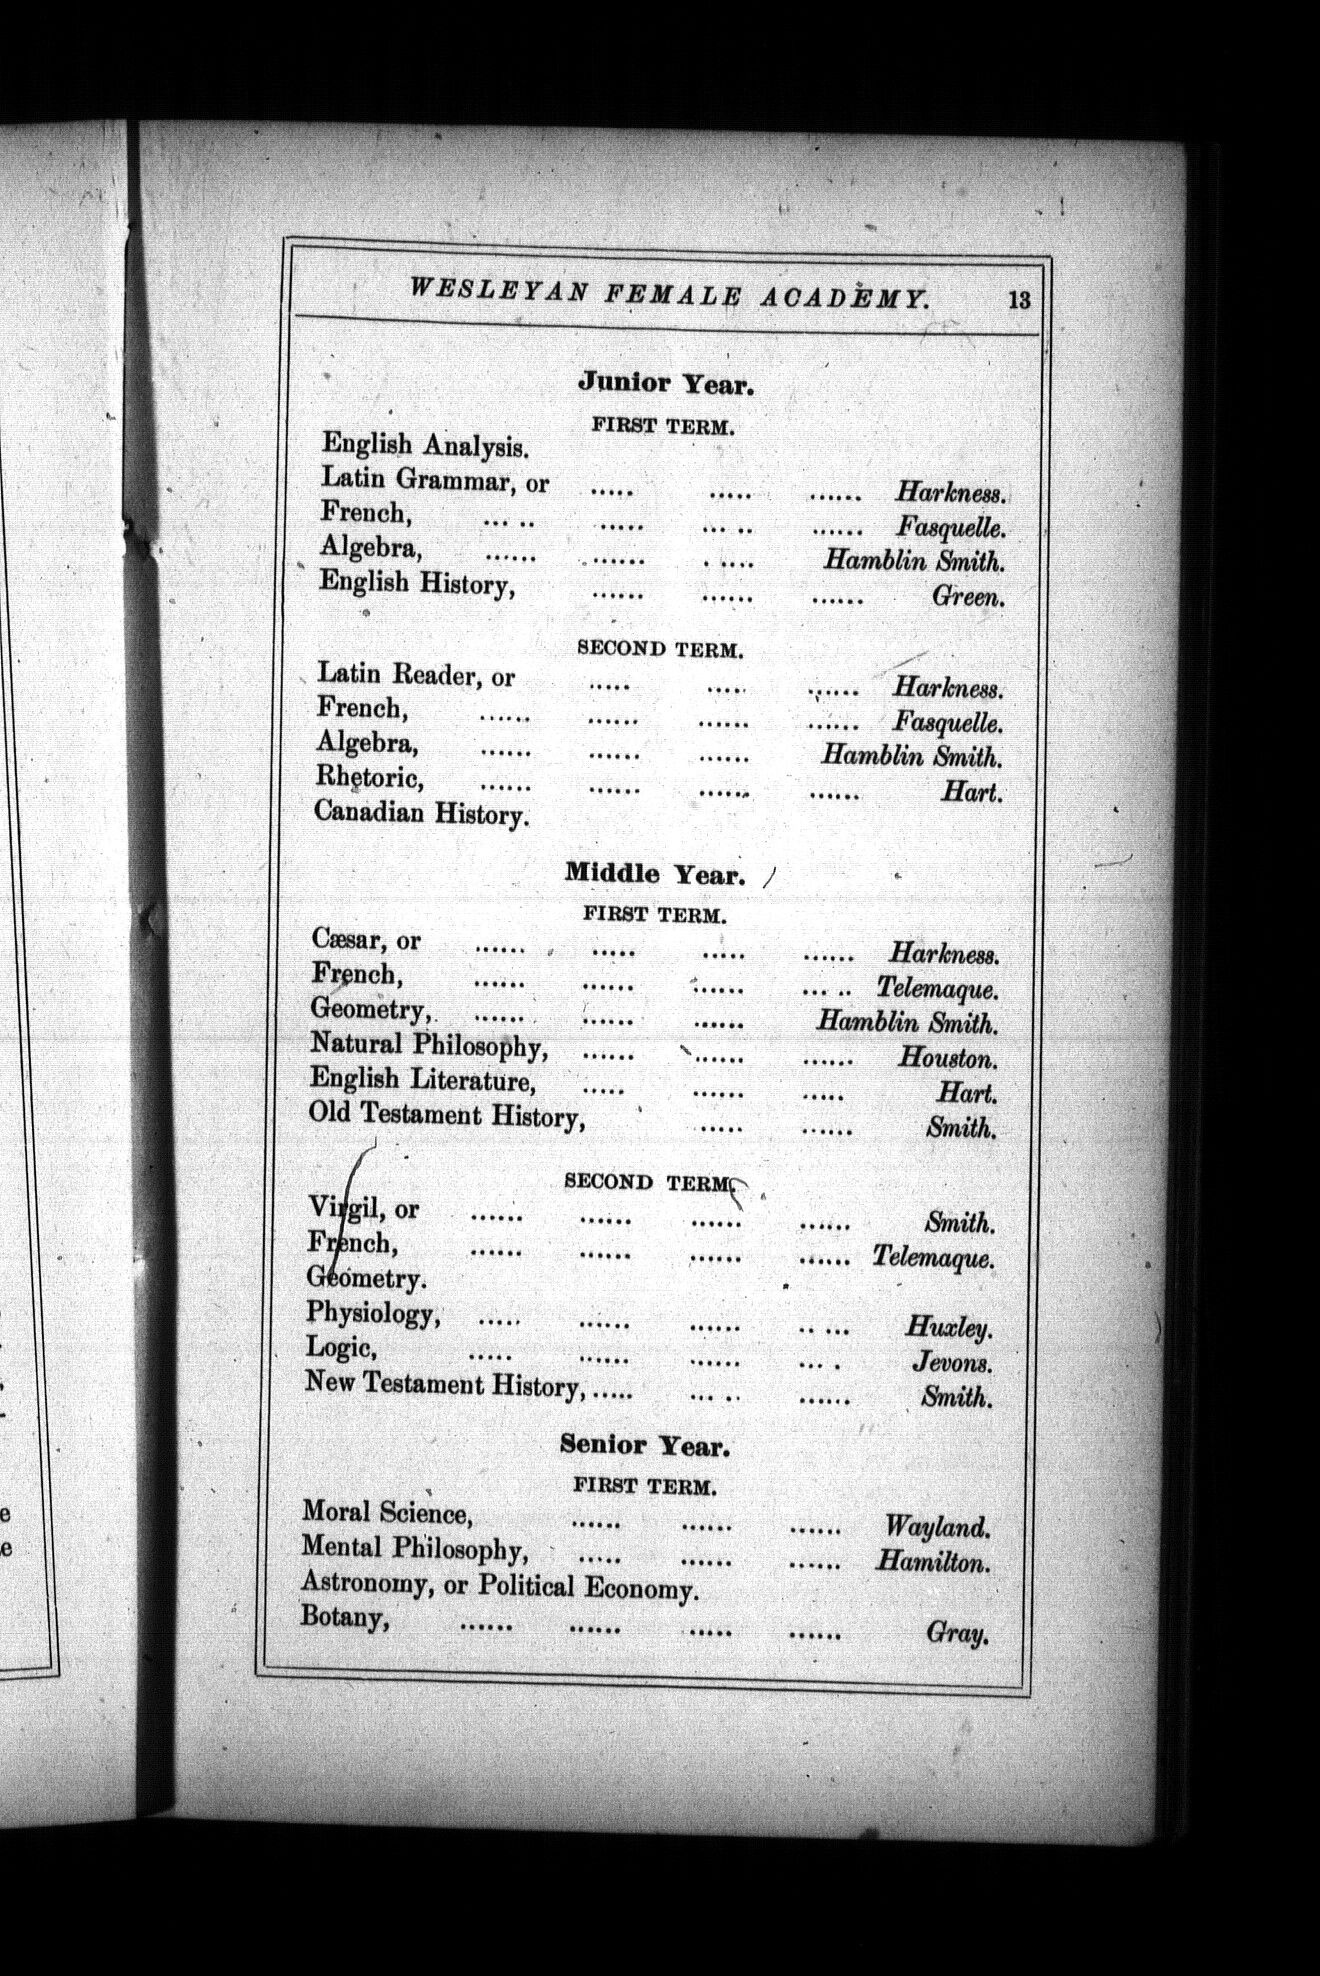 WESLEYAN FEMALE ACADEMY. 13
Junior Year.
FIRST TERM.
English Analysis.
Latin Grammar, or ..... ..... ...... Harkness.
French, ... .. ..... ... .. ...... Fasquelle.
Algebra, ...... ...... . .... Hamblin Smith.
English History, ...... ...... ...... Green.
SECOND TERM.
Latin Reader, or ..... ..... ...... Harkness.
French, ...... ...... ...... ...... Fasquelle.
Algebra, ...... ...... ...... Hamblin Smith.
Rhetoric, ...... ...... ...... ...... Hart.
Canadian History.
Middle Year.
FIRST TERM.
Cæsar, or ...... ..... ..... ...... Harkness.
French, ...... ...... ...... ... .. Telemaque.
Geometry, ...... ...... ...... Hamblin Smith.
Natural Philosophy, ...... ...... ...... Houston.
English Literature, ..... ...... ..... Hart.
Old Testament History, ..... ...... Smith.
SECOND TERM.
Virgil, or ...... ...... ...... ...... Smith.
French, ...... ...... ...... ...... Telemaque.
Geometry.
Physiology, ..... ...... ...... .. ... Huxley.
Logic, ..... ...... ...... ... . Jevons.
New Testament History, ..... ... .. ...... Smith.
Senior Year.
FIRST TERM.
Moral Science, ...... ...... ...... Wayland.
Mental Philosophy, ..... ...... ...... Hamilton.
Astronomy, or Political Economy.
Botany, ...... ...... ..... ...... Gray.